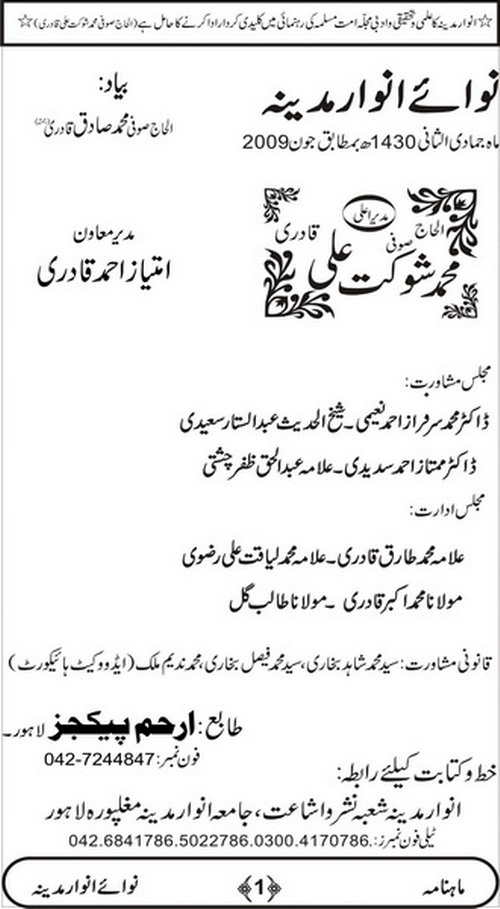 ☆انوار مدینہ کا علمی و تحقیقی و ادبی مجلّہ امت مسلمہ کی رہنمائی میں کلیدی کردار ادا کرنے کا حامل ہے (الحاج صوفی محمد شوکت علی قادری)☆
نوائے انوار مدینہ
ماہ جمادی الثانی 1430ھ بمطابق جون 2009
بیاد:
الحاج صوفی محمد صادق قادری
مدیر اعلیٰ
الحاج صوفی محمد شوکت علی قادری
مدیر معاون
امتیاز احمد قادری
مجلس مشاورت:
ڈاکٹر محمد سرفراز احمد نعیمی۔ شیخ الحدیث عبدالستار سعیدی
ڈاکٹر ممتاز احمد سدیدی۔ علامہ عبدالحق ظفر چشتی
مجلس ادارت:
علامہ محمد طارق قادری۔ علامہ محمد لیاقت علی رضوی
مولانا محمد اکبر قادری ۔ مولانا طالب گل
قانونی مشاورت: سید محمد شاہد بخاری، سید محمد فیصل بخاری، محمد ندیم ملک (ایڈووکیٹ ہائیکورٹ)
طابع: ارحم پیکجز لاہور۔
فون نمبر: 042-7244847
خط و کتابت کیلئے رابطہ:
انوار مدینہ شعبہ نشر و اشاعت، جامعہ انوار مدینہ مغلپورہ لاہور
ٹیلی فون نمبرز: 042.6841786.5022786.0300.4170786.
ماہنامہ
1
نوائے انوار مدینہ